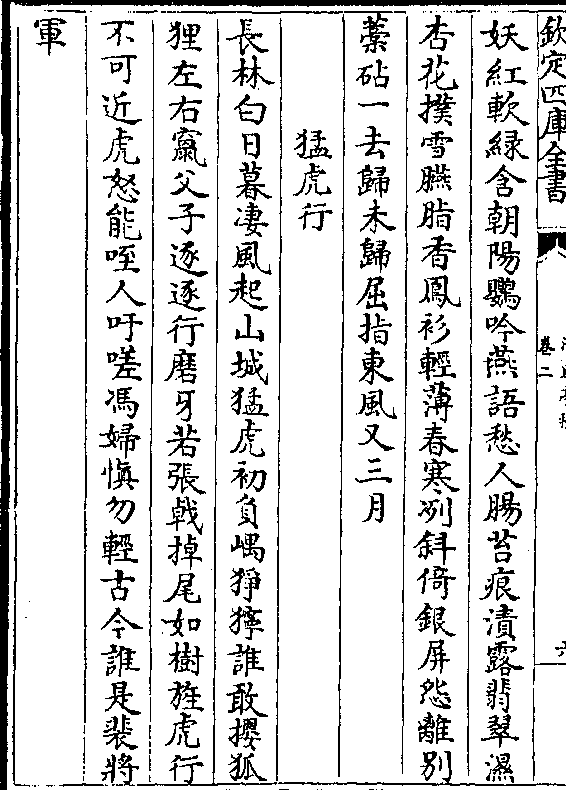 欽定四庫全書
卷二
妖紅軟綠含朝陽鸚吟燕語愁人腸苔痕漬露翡翠濕
杏花撲雪臙脂香鳳衫輕薄春寒冽斜倚銀屏怨離別
藁砧一去歸未歸屈指東風又三月
猛虎行
長林白日暮凄風起山城猛虎初負嵎猙獰誰敢攖狐
狸左右竄父子逐逐行磨牙若張戟掉尾如樹旌虎行
不可近虎怒能咥人吁嗟馮婦慎勿輕古今誰是裴將
軍